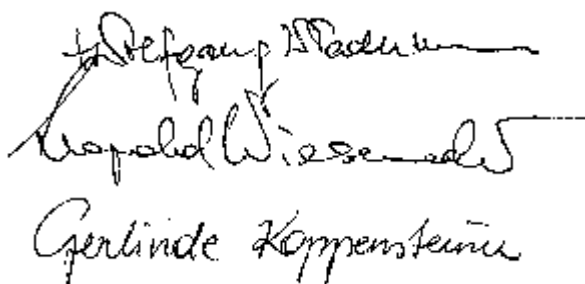 Wolfgang
Leopold Wiesenader
Gerlinde Koppensteiner